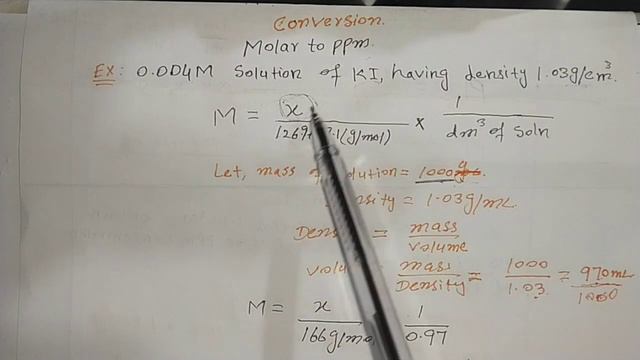 Conversion.
Molar to ppm.
Ex: 0.004M Solution of KI, having density 1.03g/cm³.
M = x / (g/mol) × 1 / dm³ of Soln
Let, mass of solution = 1000g
= 1.03g/mL
= mass / volume
= mass / Density = 1000 / 1.03 = 970mL / 1000
M = x / 166g/mol 1 / 0.97